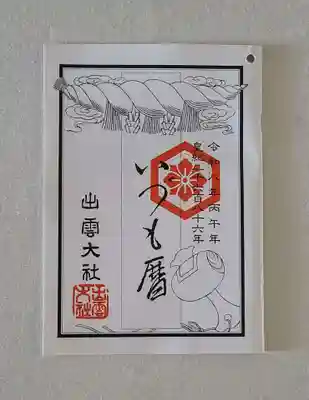 令和八年丙午年
皇紀二千六百八十六年
いつも暦
出雲大社
出雲大社